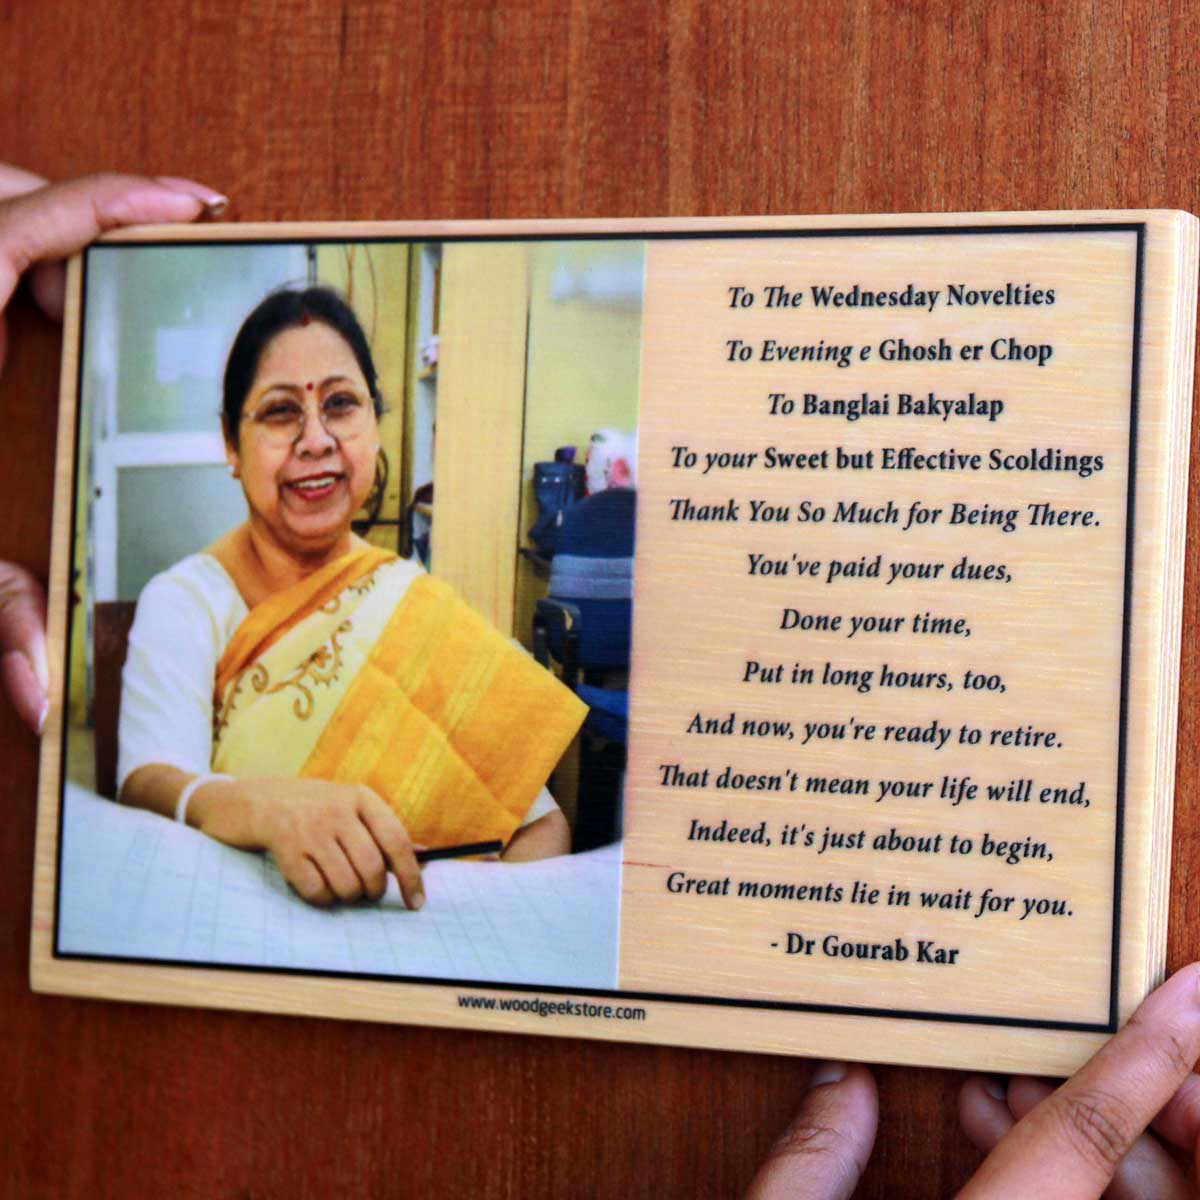 To The Wednesday Novelties
To Evening e Ghosh er Chop
To Banglai Bakyalap
To your Sweet but Effective Scoldings
Thank You So Much for Being There.
You've paid your dues,
Done your time,
Put in long hours, too,
And now, you're ready to retire.
That doesn't mean your life will end,
Indeed, it's just about to begin,
Great moments lie in wait for you.
- Dr Gourab Kar
www.woodgeekstore.com